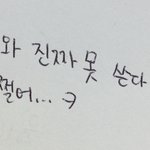 와 진짜 못 쓴다
쩔어... ㅋ